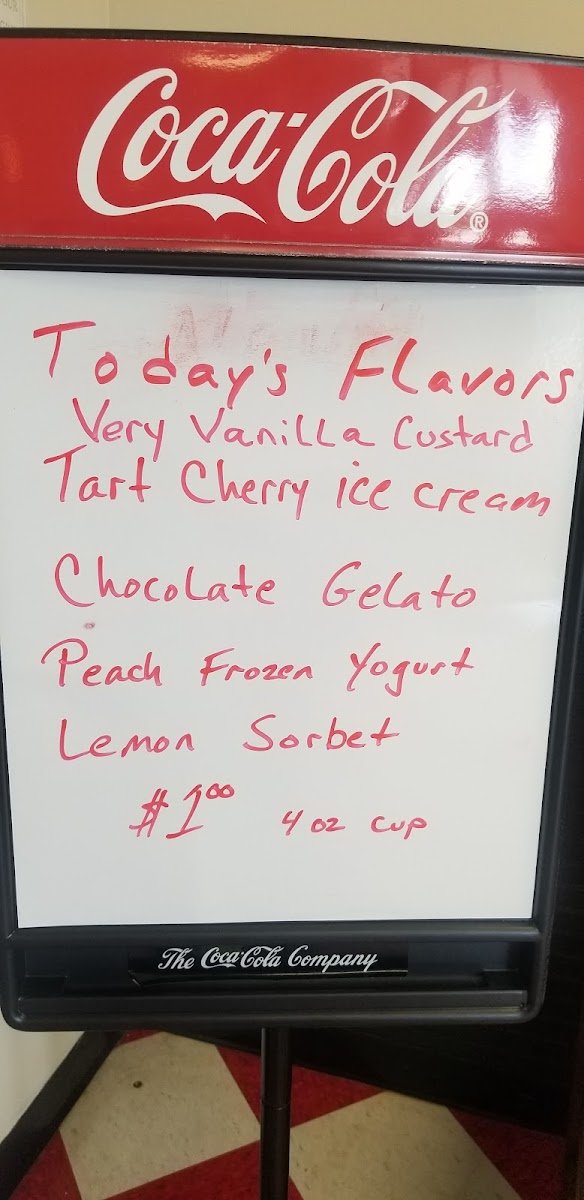 Coca-Cola®
Today's Flavors
Very Vanilla Custard
Tart Cherry ice cream
Chocolate Gelato
Peach Frozen Yogurt
Lemon Sorbet
$1.00 4 oz cup
The Coca-Cola Company